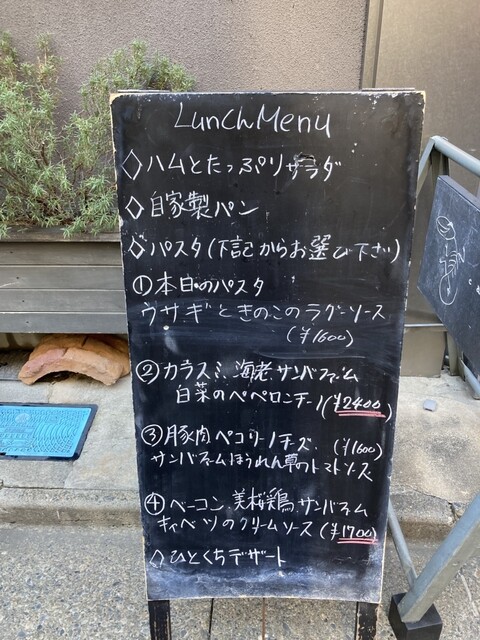 Lunch Menu
◇ハムとたっぷりサラダ
◇自家製パン
◇パスタ(下記からお選び下さい)
①本日のパスタ
ウサギときのこのラグーソース
(¥1600)
②カラスミ、海老、サンバファーム
白菜のペペロンチーノ(¥2400)
③豚肉ペコリーノチーズ (¥1600)
サンバファームほうれん草のトマトソース
④ベーコン、美桜鶏、サンバファーム
キャベツのクリームソース(¥1700)
◇ひとくちデザート